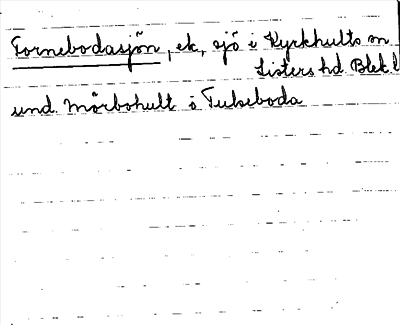 Fornebodasjön, ek, sjö i Kyrkhults sn
Listers hd Blek l
und. Mörbohult o Tulseboda